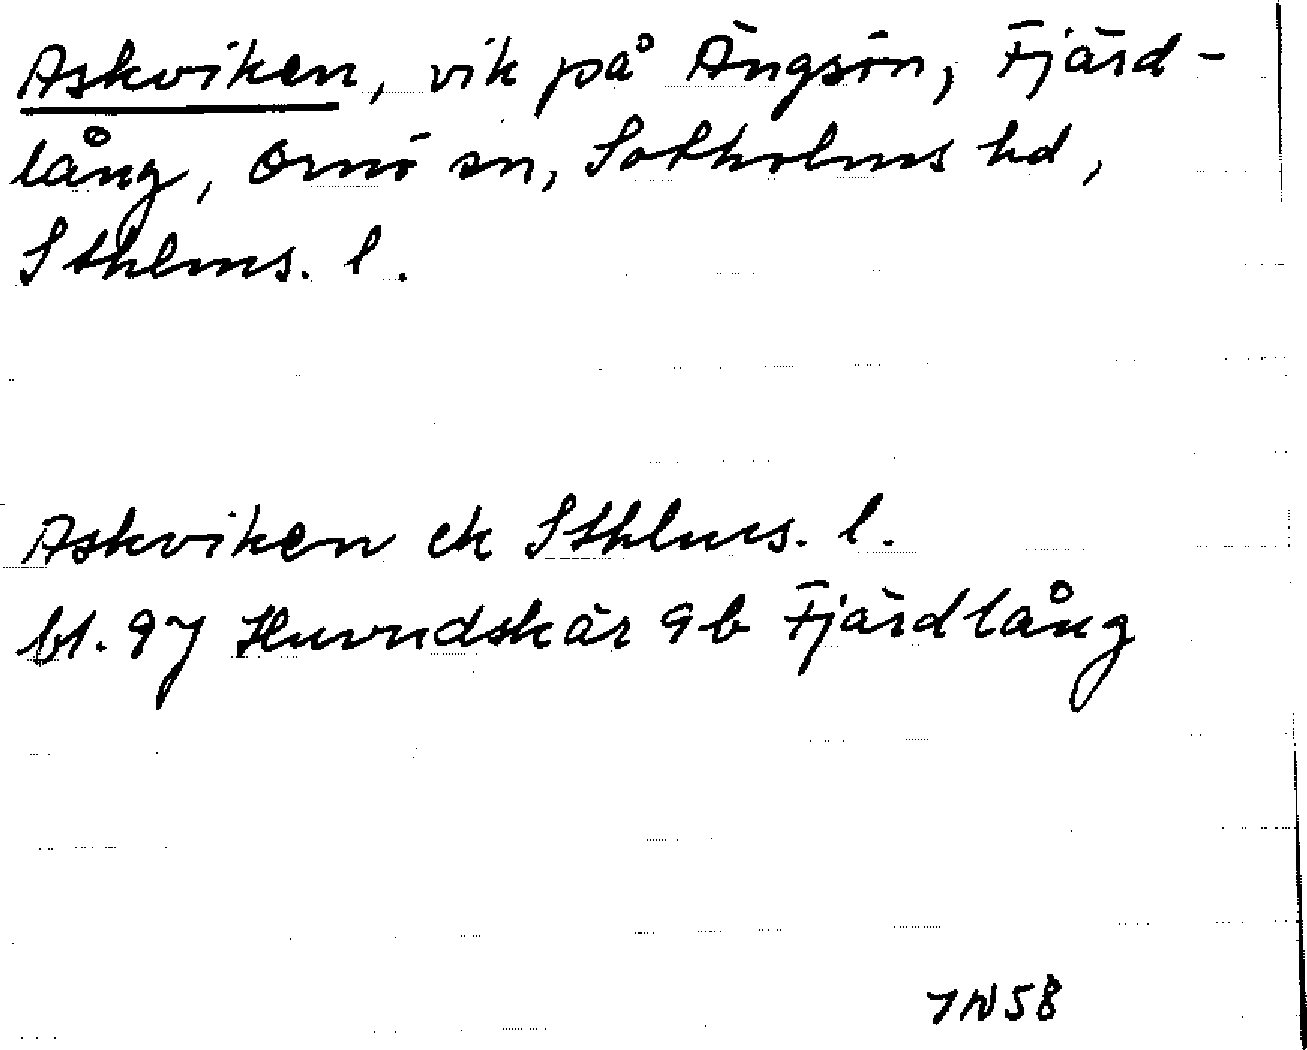 Askviken, vik på Ängsön, Fjärd-
lång, Ornö sn, Sotholms hd,
Sthlms. l.
Askviken ek Sthlms. l.
bl. 97 Huvudskär 9b Fjärdlång
7N58